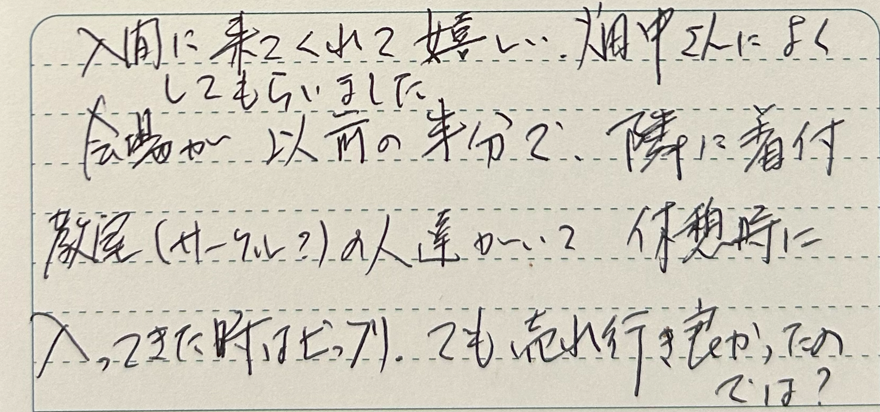 入間に来てくれて嬉しい.畑中さんによく
してもらいました
会場が以前の半分で、隣に着付
教室(サークル?)の人達がいて 休憩時に
入ってきた時はビックリ.でも売れ行き良かったの
では?